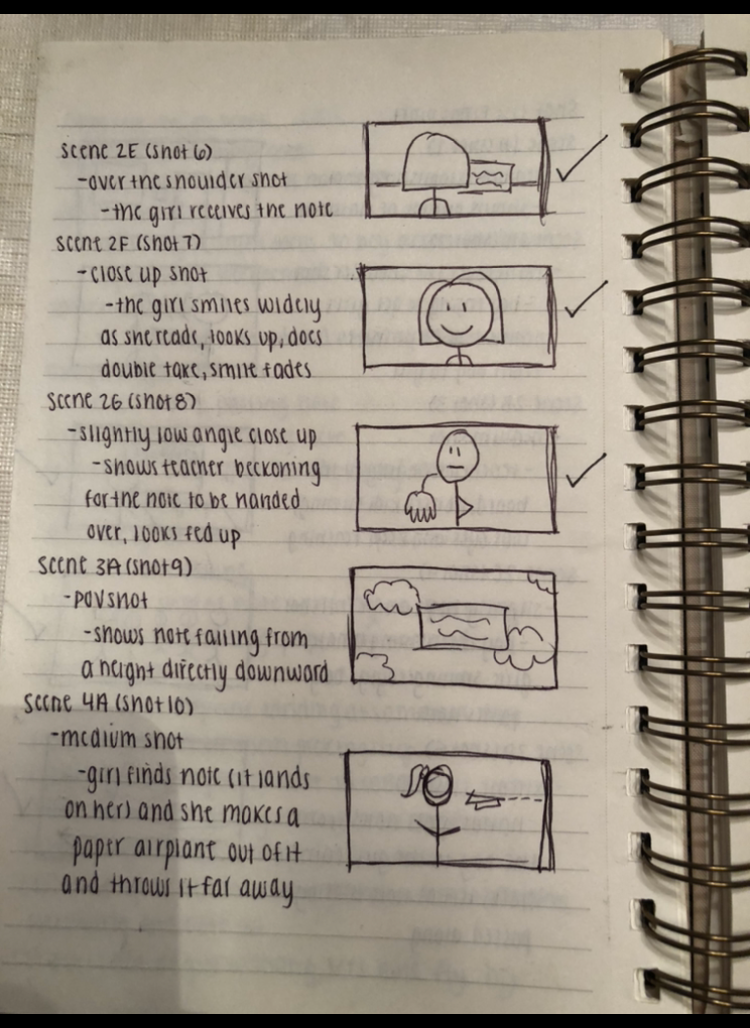 Scene 2E (shot 6)
-over the shoulder shot
-the girl receives the note
Scene 2F (shot 7)
-close up shot
-the girl smiles widely
as she reads, looks up, does
double take, smile fades
Scene 2G (shot 8)
-slightly low angle close up
-shows teacher beckoning
for the note to be handed
over, looks fed up
Scene 3A (shot 9)
-POV shot
-shows note falling from
a height directly downward
Scene 4A (shot 10)
-medium shot
-girl finds note (it lands
on her) and she makes a
paper airplane out of it
and throws it far away